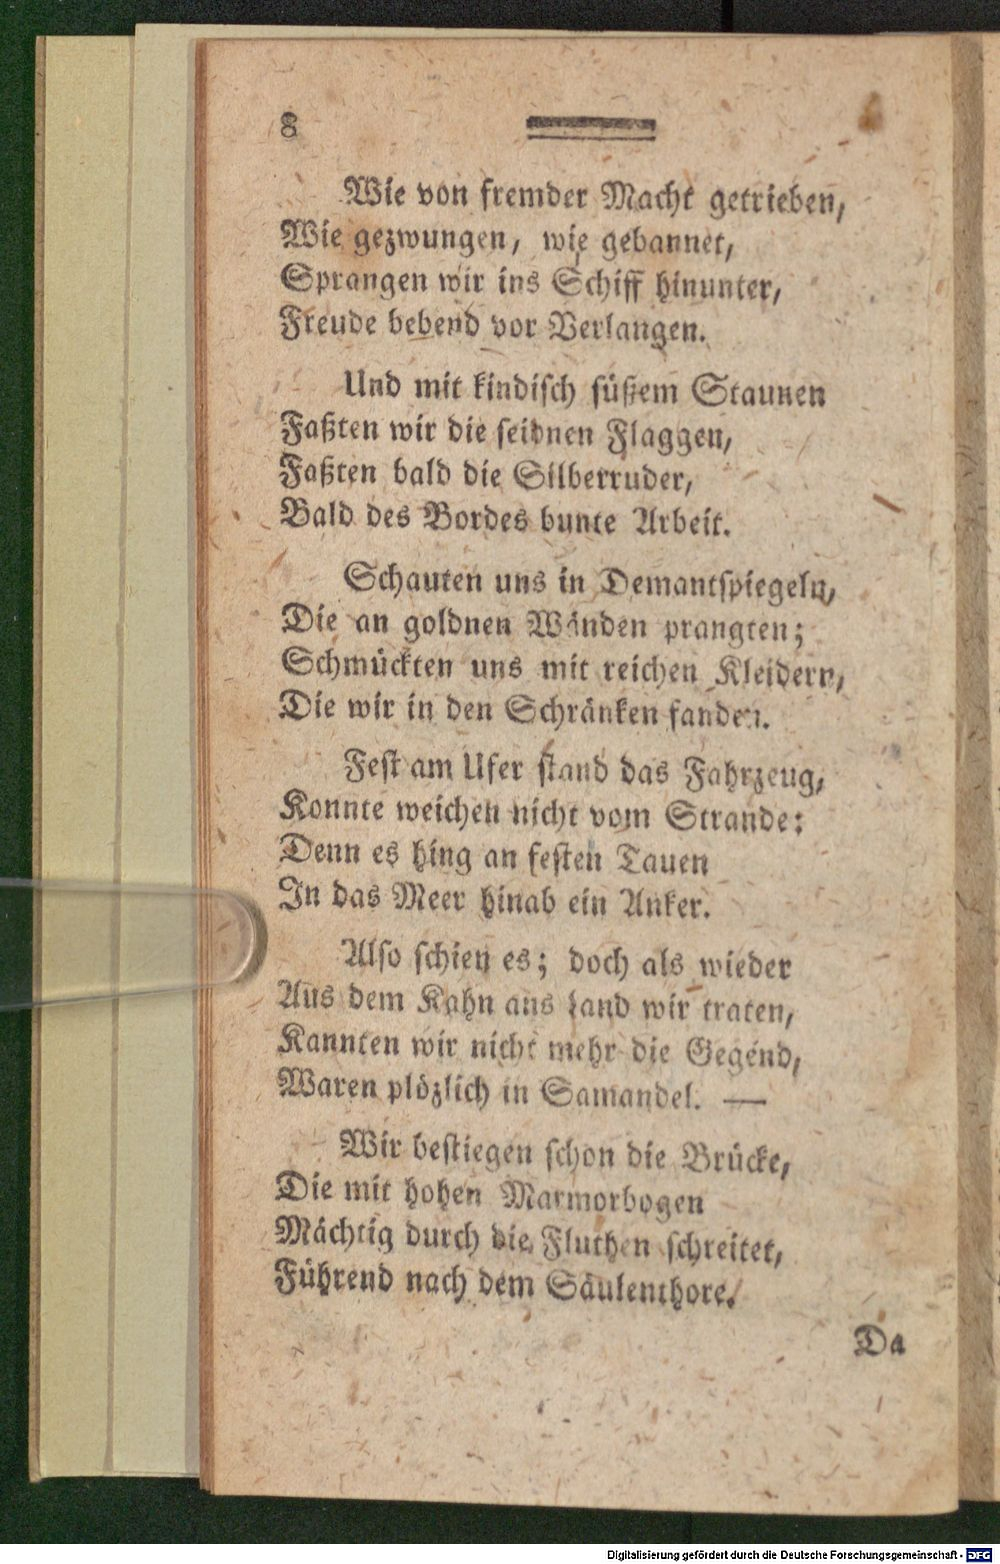 8
Wie von fremder Macht getrieben,
Wie gezwungen, wie gebannet,
Sprangen wir ins Schiff hinunter,
Freude bebend vor Verlangen.
Und mit kindisch süßem Staunen
Faßten wir die seidnen Flaggen,
Faßten bald die Silberruder,
Bald des Bordes bunte Arbeit.
Schauten uns in Demantspiegeln,
Die an goldnen Wänden prangten;
Schmückten uns mit reichen Kleidern,
Die wir in den Schränken fanden.
Fest am Ufer stand das Fahrzeug,
Konnte weichen nicht vom Strande:
Denn es hing an festen Tauen
In das Meer hinab ein Anker.
Also schien es; doch als wieder
Aus dem Kahn ans Land wir traten,
Kannten wir nicht mehr die Gegend,
Waren plözlich in Samandel. —
Wir bestiegen schon die Brücke,
Die mit hohen Marmorbogen
Mächtig durch die Fluthen schreitet,
Führend nach dem Säulenthore.
Da
Digitalisierung gefördert durch die Deutsche Forschungsgemeinschaft - DFG